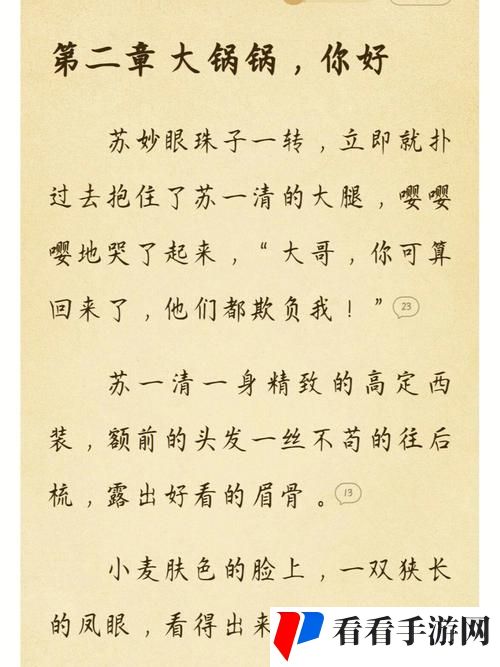 第二章 大锅锅，你好
苏妙眼珠子一转，立即就扑
过去抱住了苏一清的大腿，嘤嘤
嘤地哭了起来，“大哥，你可算
回来了，他们都欺负我！” 23
苏一清一身精致的高定西
装，额前的头发一丝不苟的往后
梳，露出好看的眉骨。 13
小麦肤色的脸上，一双狭长
的凤眼，看得出来
看看手游网